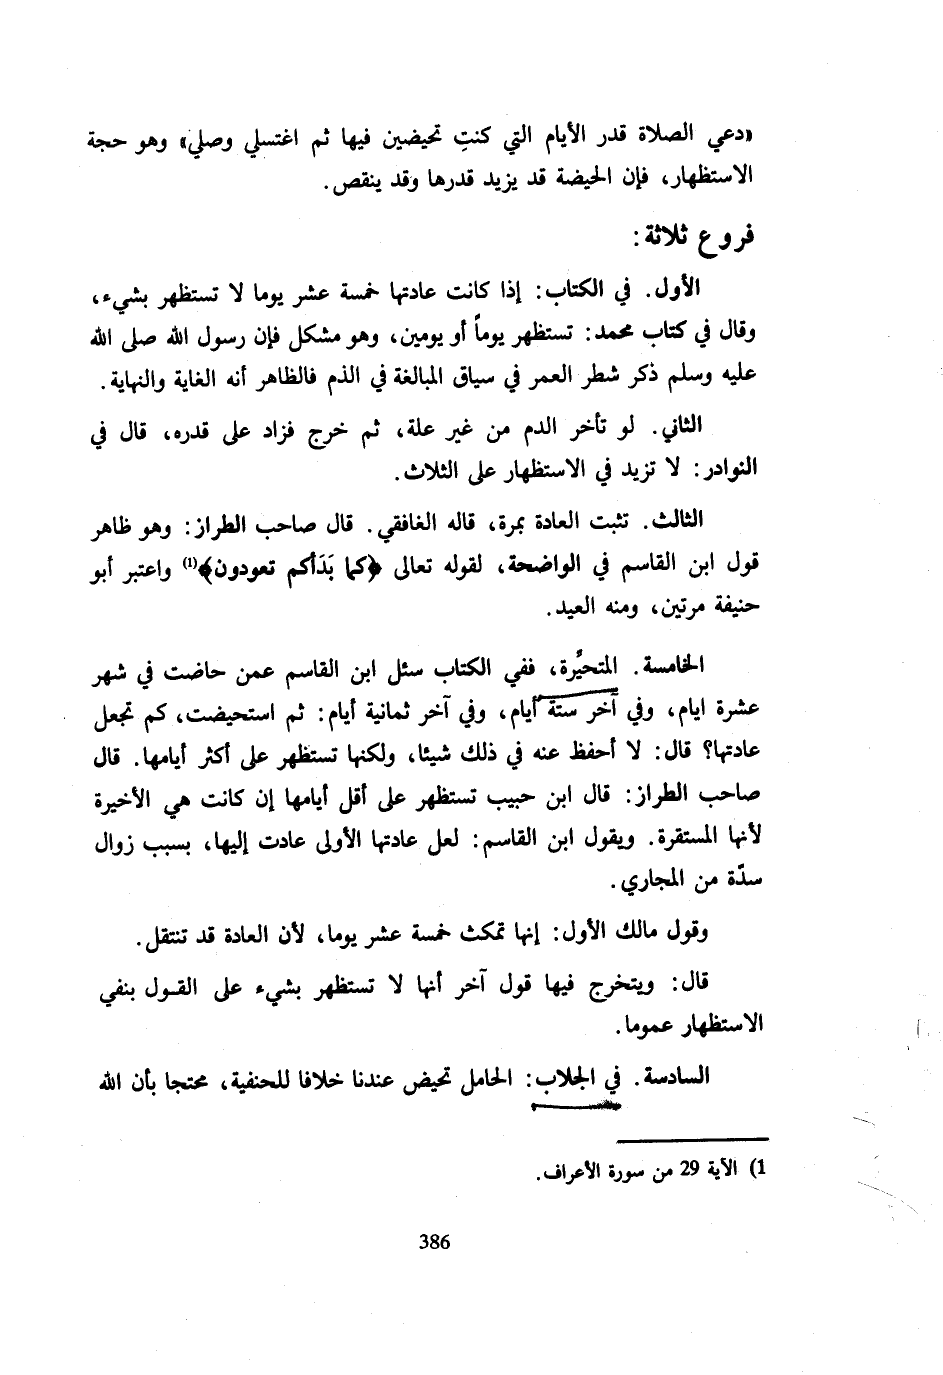 «دعي الصلاة قدر الأيام التي كنتِ تحيضين فيها ثم اغتسلي وصلي» وهو حجة
الاستظهار، فإن الحيضة قد يزيد قدرها وقد ينقص.
فروع ثلاثة:
الأول. في الكتاب: إذا كانت عادتها خمسة عشر يوما لا تستظهر بشيء،
وقال في كتاب محمد: تستظهر يوماً أو يومين، وهو مشكل فإن رسول الله صلى الله
عليه وسلم ذكر شطر العمر في سياق المبالغة في الذم فالظاهر أنه الغاية والنهاية.
الثاني. لو تأخر الدم من غير علة، ثم خرج فزاد على قدره، قال في
النوادر: لا تزيد في الاستظهار على الثلاث.
الثالث. تثبت العادة بمرة، قاله الغافقي. قال صاحب الطراز: وهو ظاهر
قول ابن القاسم في الواضحة، لقوله تعالى ﴿كما بَدَأكم تعودون﴾(1) واعتبر أبو
حنيفة مرتين، ومنه العيد.
الخامسة. المتحيِّرة، ففي الكتاب سئل ابن القاسم عمن حاضت في شهر
عشرة ايام، وفي آخر ستة أيام، وفي آخر ثمانية أيام: ثم استحيضت، كم تجعل
عادتها؟ قال: لا أحفظ عنه في ذلك شيئا، ولكنها تستظهر على أكثر أيامها. قال
صاحب الطراز: قال ابن حبيب تستظهر على أقل أيامها إن كانت هي الأخيرة
لأنها المستقرة. ويقول ابن القاسم: لعل عادتها الأولى عادت إليها، بسبب زوال
سدّة من المجاري.
وقول مالك الأول: إنها تمكث خمسة عشر يوما، لأن العادة قد تنتقل.
قال: ويتخرج فيها قول آخر أنها لا تستظهر بشيء على القول بنفي
الاستظهار عموما.
السادسة. في الجلاب: الحامل تحيض عندنا خلافا للحنفية، محتجا بأن الله
1) الآية 29 من سورة الأعراف.
386